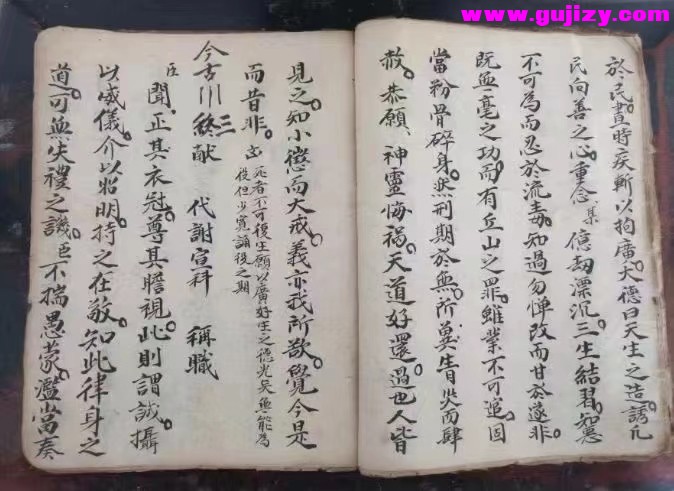 www.gujizy.com
於民。晝時疾斬以拘廣大德曰天生之造。誘凡
民向善之心。重念 某 億劫漂沉。三生結習。知惡
不可為而忍於流毒。知過勿憚改而甘於遂非。
既無一毫之功而有丘山之罪。雖業不可追。固
當粉骨碎身。然刑期於無所。冀眚災而肆
赦。恭願、神靈悔禍。天道好還。過也人皆
見之。知小懲而大戒。義亦我所欲。覺今是
而昔非。 死者不可復生願以廣好生之德
後但少寬誦後之期
今古川 三 終献 代謝宣科 稱職
臣聞、正其衣冠。尊其瞻視。此則謂誠。攝
以威儀。介以昭明。持之在敬。知此律身之
道。可無失禮之譏。臣不揣愚蒙。濫當奏